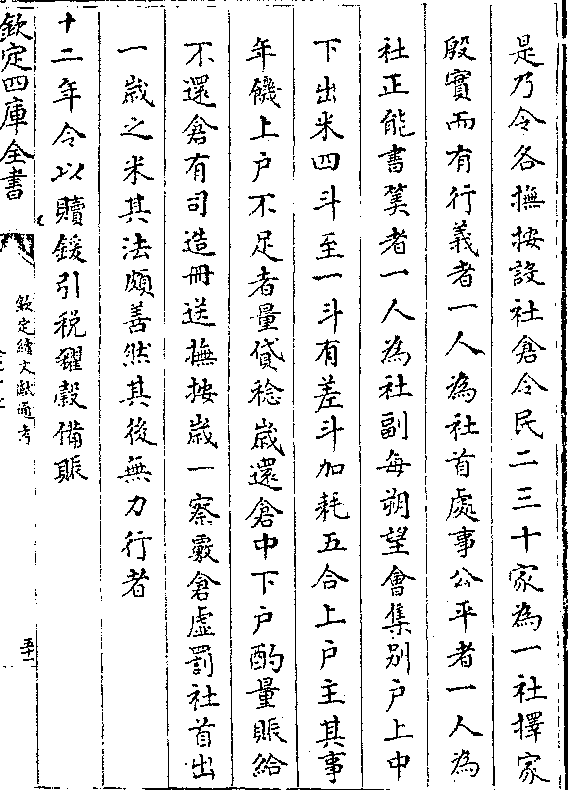 是乃令各撫按設社倉令民二三十家為一社擇家
殷實而有行義者一人為社首處事公平者一人為
社正能書筭者一人為社副每朔望會集别户上中
下出米四斗至一斗有差斗加耗五合上户主其事
年饑上户不足者量貸稔歲還倉中下户酌量賑給
不還倉有司造冊送撫按歲一察覈倉虚罰社首出
一歲之米其法頗善然其後無力行者
十二年令以贖鍰引税糴穀備賑
欽定四庫全書
欽定續文獻通考